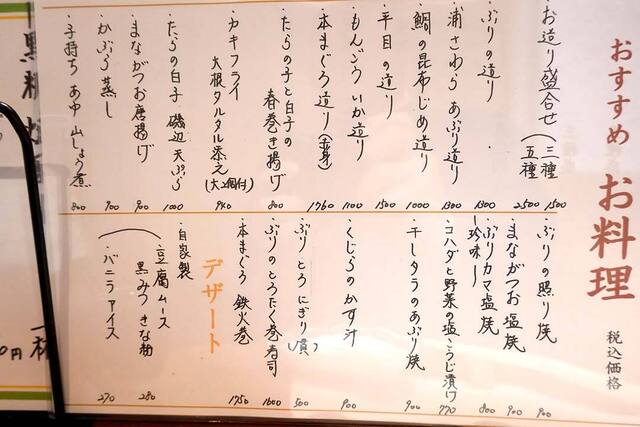 おすすめ お料理
税込価格
・お造り盛合せ(三種 1500
五種 2500
・ぶりの造り 1300
・浦さわら あぶり造り 1300
・鯛の昆布じめ造り 1000
・平目の造り 1500
・もんごういか造り 1100
・本まぐろ造り(赤身) 1760
・たらの子と白子の
春巻き揚げ 800
・カキフライ
大根タルタル添え
(大2個付) 940
・たらの白子 磯辺天ぷら 1000
・まながつお唐揚げ 900
・かぶら蒸し 900
・子持ちあゆ 山しょう煮 800
・ぶりの照り焼 900
・まながつお 塩焼 900
・ぶりカマ塩焼 800
―珍味―
・コハダと野菜の塩こうじ漬け 770
・干しタラのあぶり焼 900
・くじらのかす汁 900
・ぶりとろにぎり(一貫) 500
・ぶりのとろたく巻寿司 1600
・本まぐろ 鉄火巻 1750
デザート
・自家製
豆腐ムース
黒みつきな粉 280
・バニラアイス 270
0円